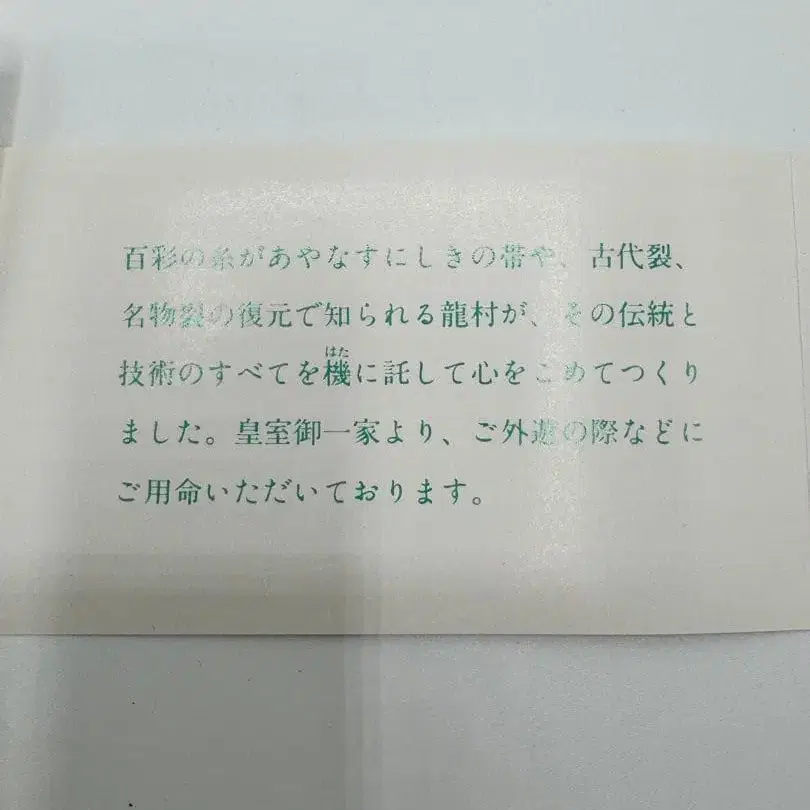 百彩の糸があやなすにしきの帯や、古代裂、
名物裂の復元で知られる龍村が、その伝統と
技術のすべてを機に託して心をこめてつくり
はた
ました。皇室御一家より、ご外遊の際などに
ご用命いただいております。